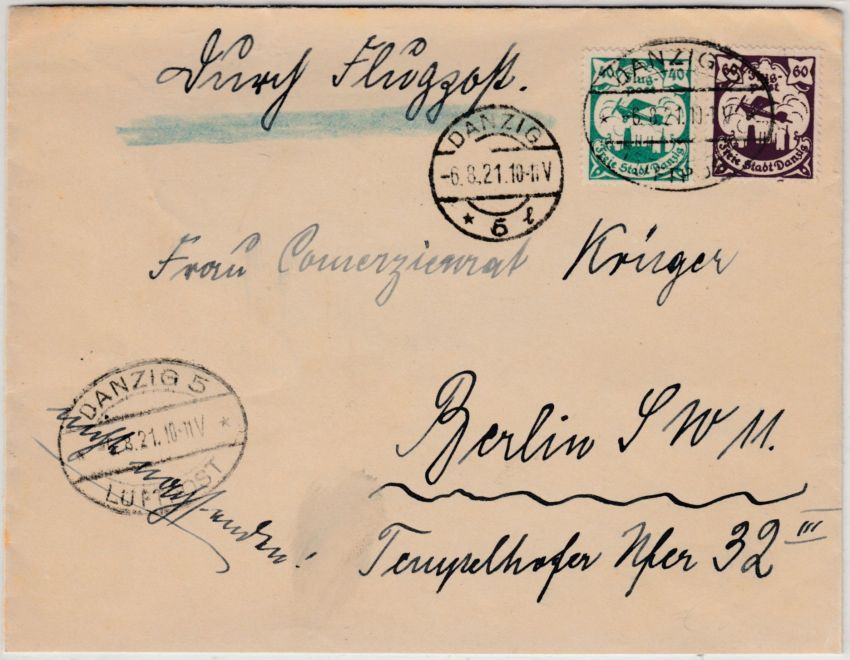 Durch Flugpost.
40 Flug- 40
post
Freie Stadt Danzig
60 Flug- 60
post
Freie Stadt Danzig
DANZIG 5
-6.8.21.10-11V
DANZIG
-6.8.21.10-11V
* 5 l
Frau Comerzienrat Krüger
DANZIG 5
8.21.10-11V *
LUFTPOST
nicht
nachsenden!
Berlin SW 11.
Tempelhofer Ufer 32 III